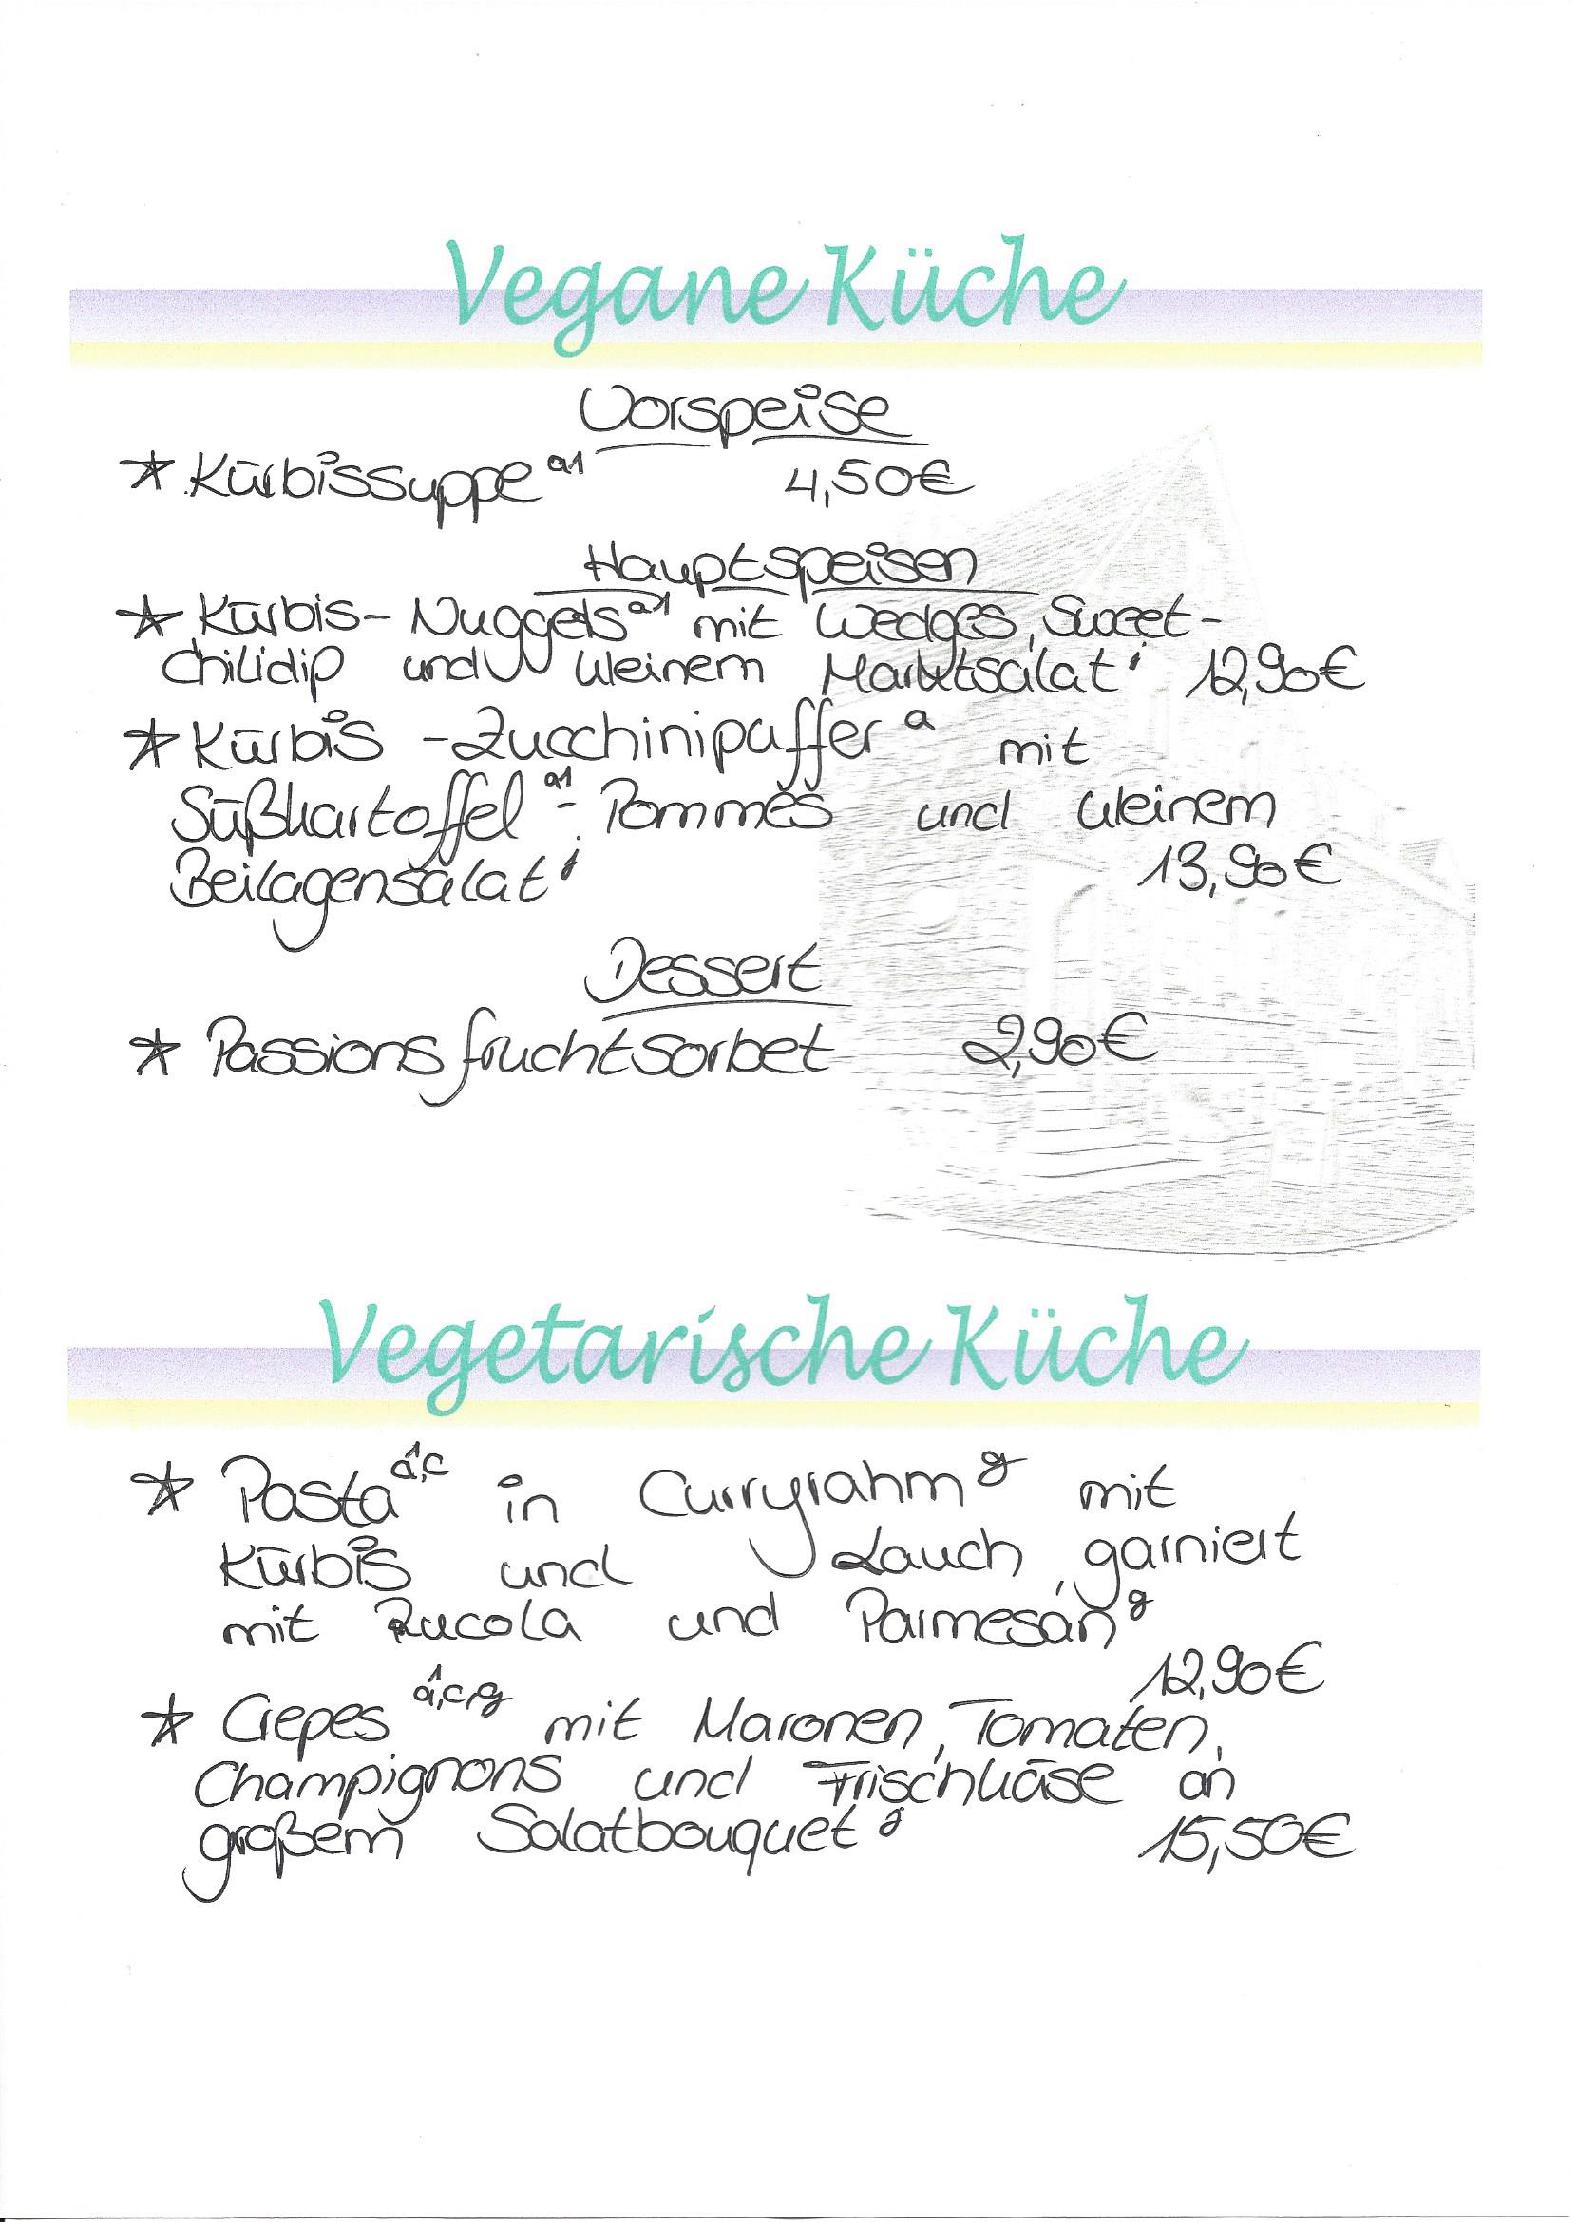 Vegane Küche
Vorspeise
* Kürbissuppe a1 4,50€
Hauptspeisen
* Kürbis- Nuggets a1 mit Wedges, Sweet-
chilidip und kleinem Marktsalat j 12,90€
* Kürbis -Zucchinipuffer a mit
Süßkartoffel a1 - Pommes und kleinem
Beilagensalat j 13,90€
Dessert
* Passionsfruchtsorbet 2,90€
Vegetarische Küche
* Pasta a1,c in Curryrahm g mit
Kürbis und Lauch, garniert
mit Rucola und Parmesan g
12,90€
* Crepes a1,c,g mit Maronen, Tomaten,
Champignons und Frischkäse an
großem Salatbouquet g 15,50€